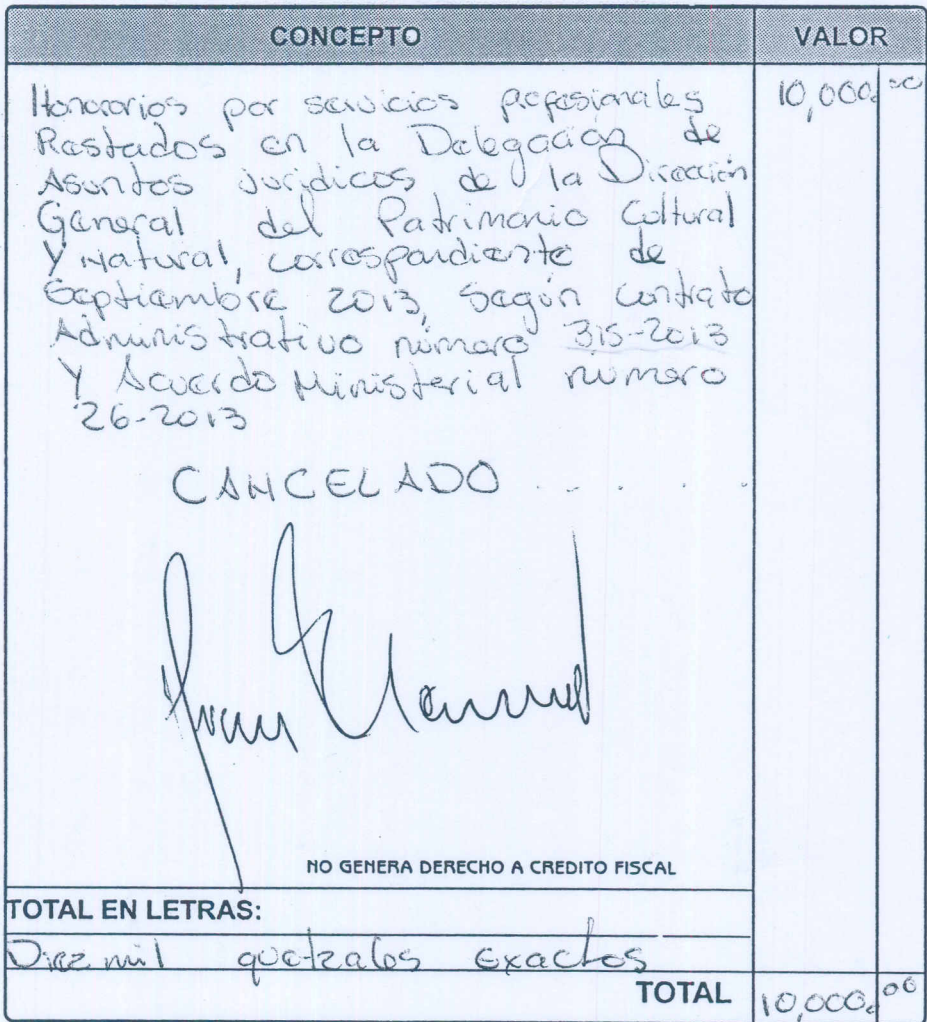 CONCEPTO VALOR
Honorarios por servicios pofesionales 10,000.00
Restados en la Delegación de
Asuntos Jurídicos de la Dirección
General del Patrimonio Cultural
Y Natural, correspondiente de
Septiembre 2013, Según contrato
Administrativo número 315-2013
Y Acuerdo Ministerial número
26-2013
CANCELADO . . . .
NO GENERA DERECHO A CREDITO FISCAL
TOTAL EN LETRAS:
Diez mil quetzales Exactos
TOTAL 10,000.00